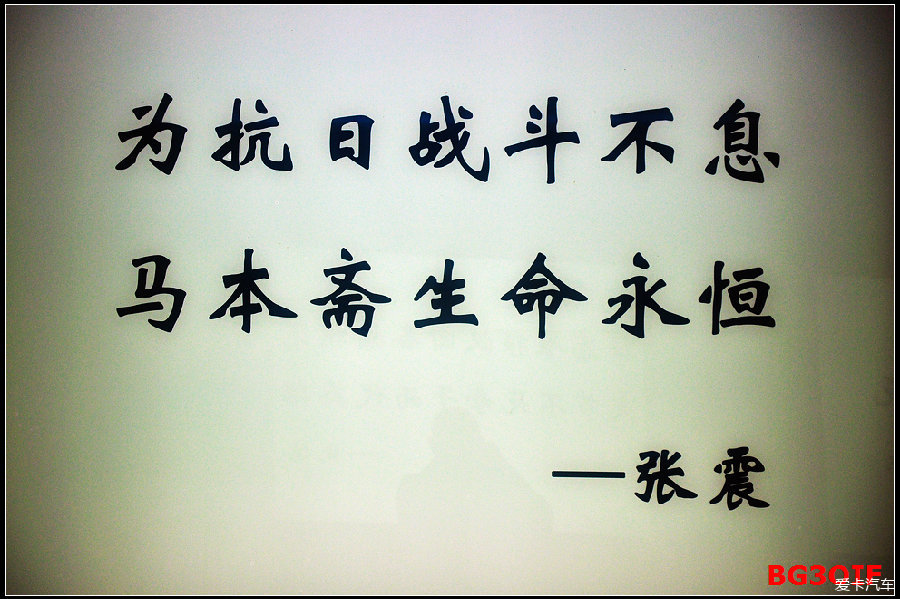 为抗日战斗不息
马本斋生命永恒
—张震
爱卡汽车